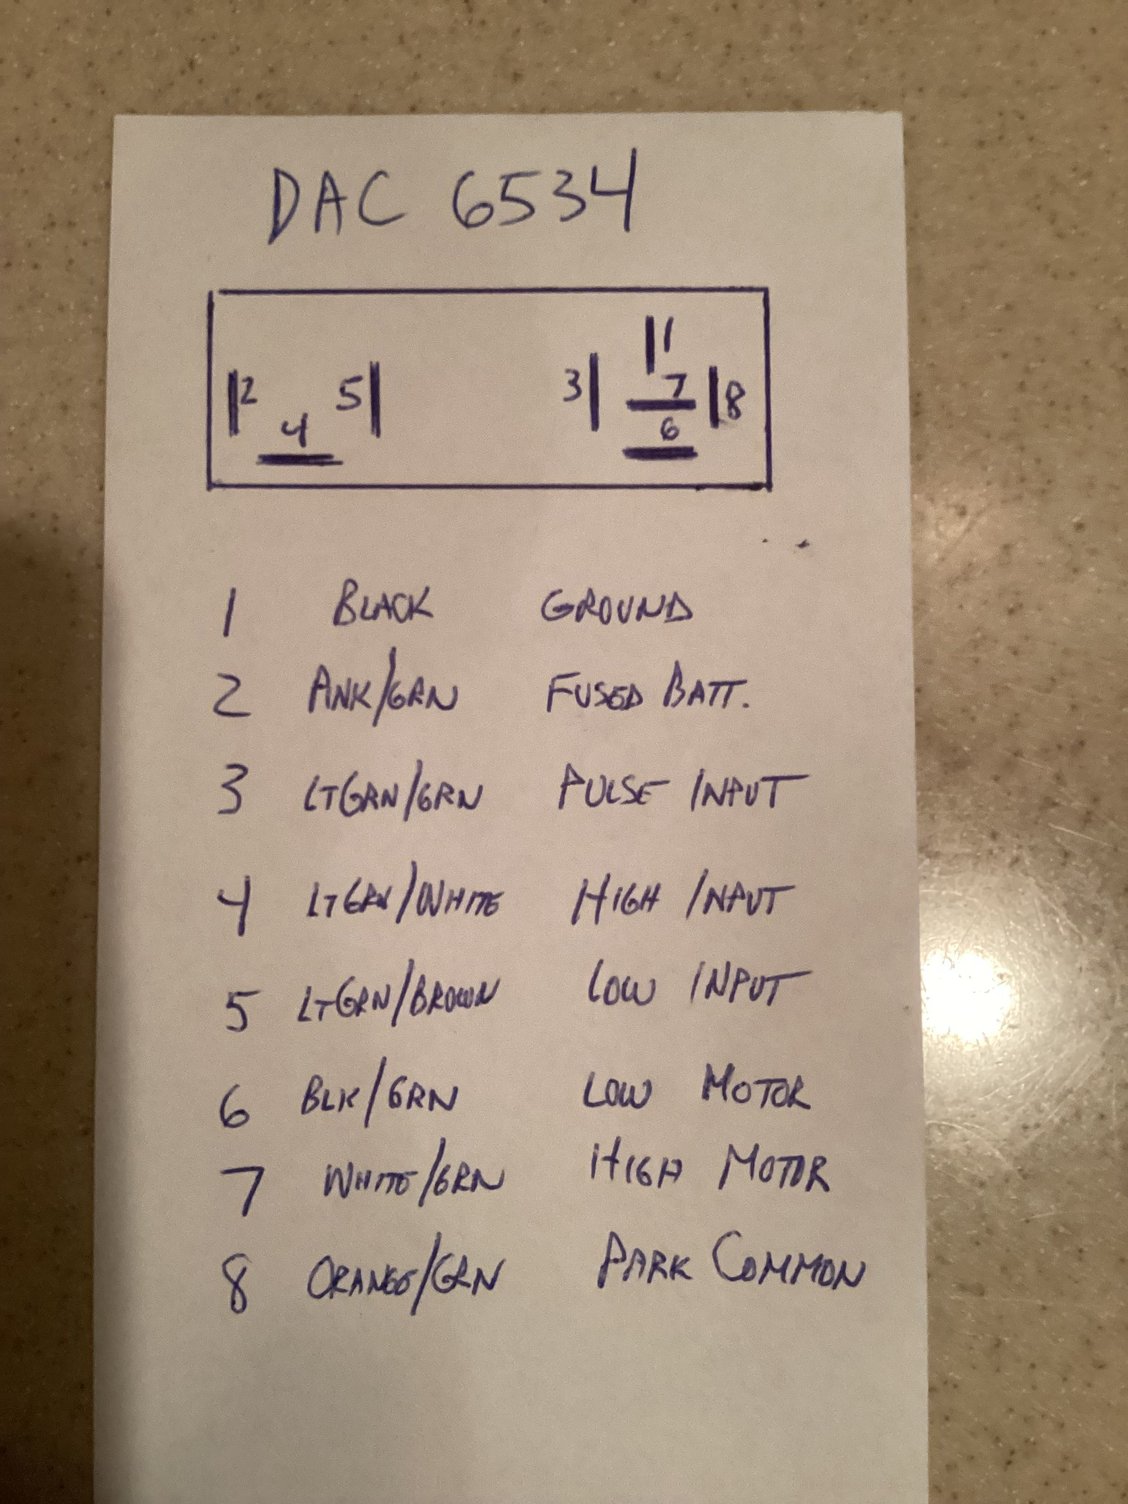 DAC 6534
1
2 5 3 7 8
4 6
1 BLACK GROUND
2 PNK/GRN FUSED BATT.
3 LTGRN/GRN PULSE INPUT
4 LTGRN/WHITE HIGH INPUT
5 LTGRN/BROWN LOW INPUT
6 BLK/GRN LOW MOTOR
7 WHITE/GRN HIGH MOTOR
8 ORANGE/GRN PARK COMMON